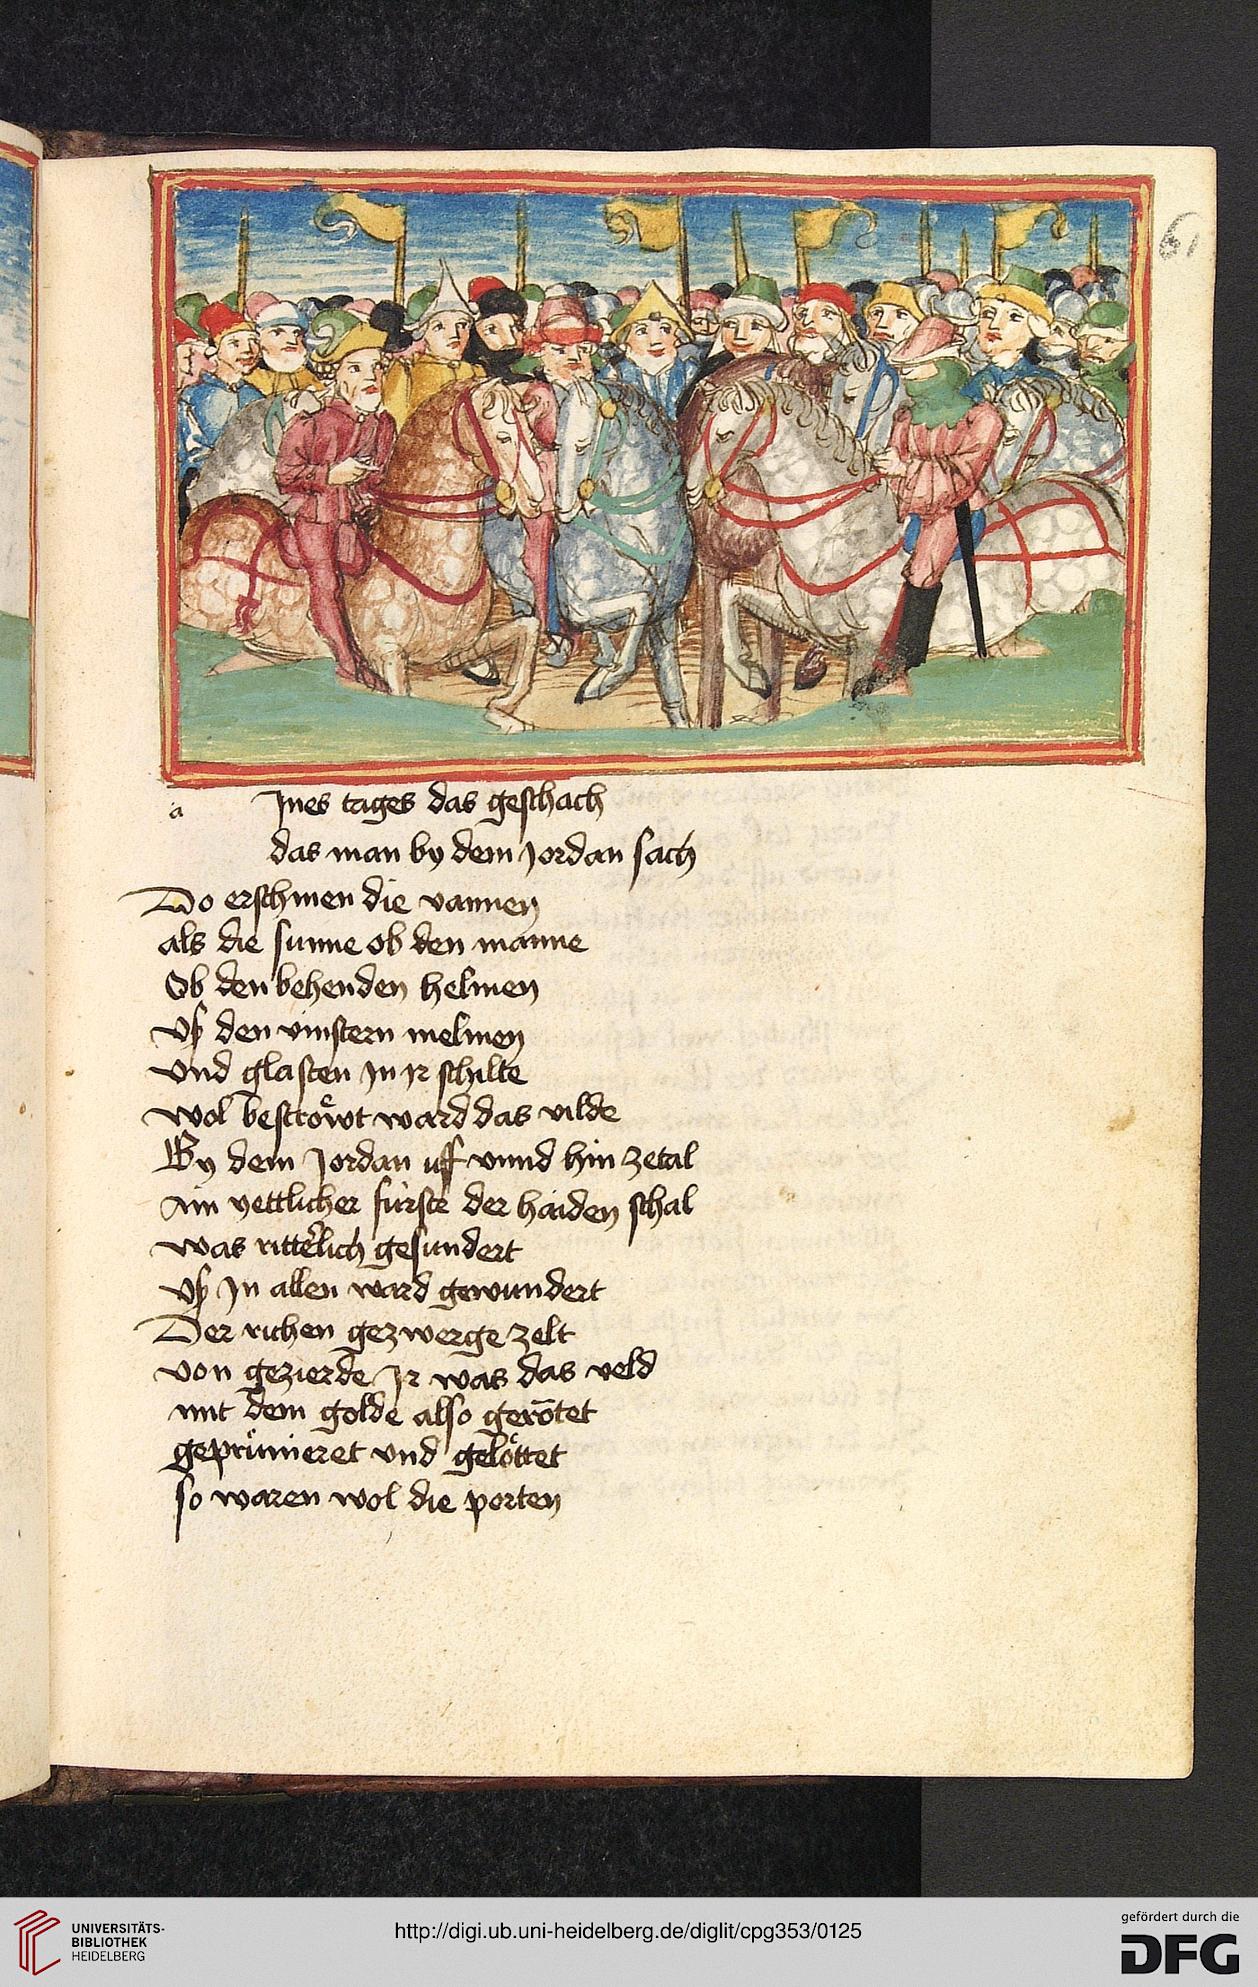 61
a Ines tages das geschach
das man by dem Jordan sach
Do erschinen die vannen
als die sunne ob den manne
Ob den behenden helmen
Vß den vinstern melmen
vnd glasten Jn Jr schilte
wol beströwt ward das vilde
By dem Jordan uff vnnd hin zetal
Ain yettlicher fürste der haiden schal
was ritterlich gesundert
Vß Jn allen ward gewundert
Der richen gezwerge zelt
von gezierde Jr was das veld
mit dem golde also gerötet
geprünieret vnd gelöttet
so waren wol die porten
UNIVERSITÄTS-
BIBLIOTHEK
HEIDELBERG
http://digi.ub.uni-heidelberg.de/diglit/cpg353/0125
gefördert durch die
DFG